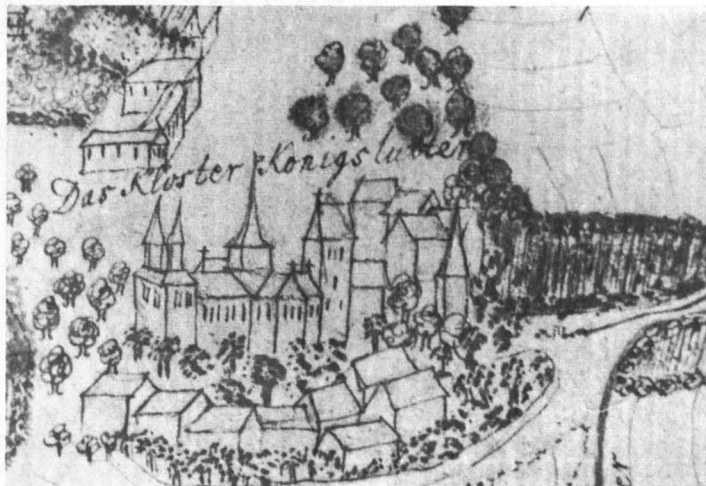 Das Kloster Königslutter